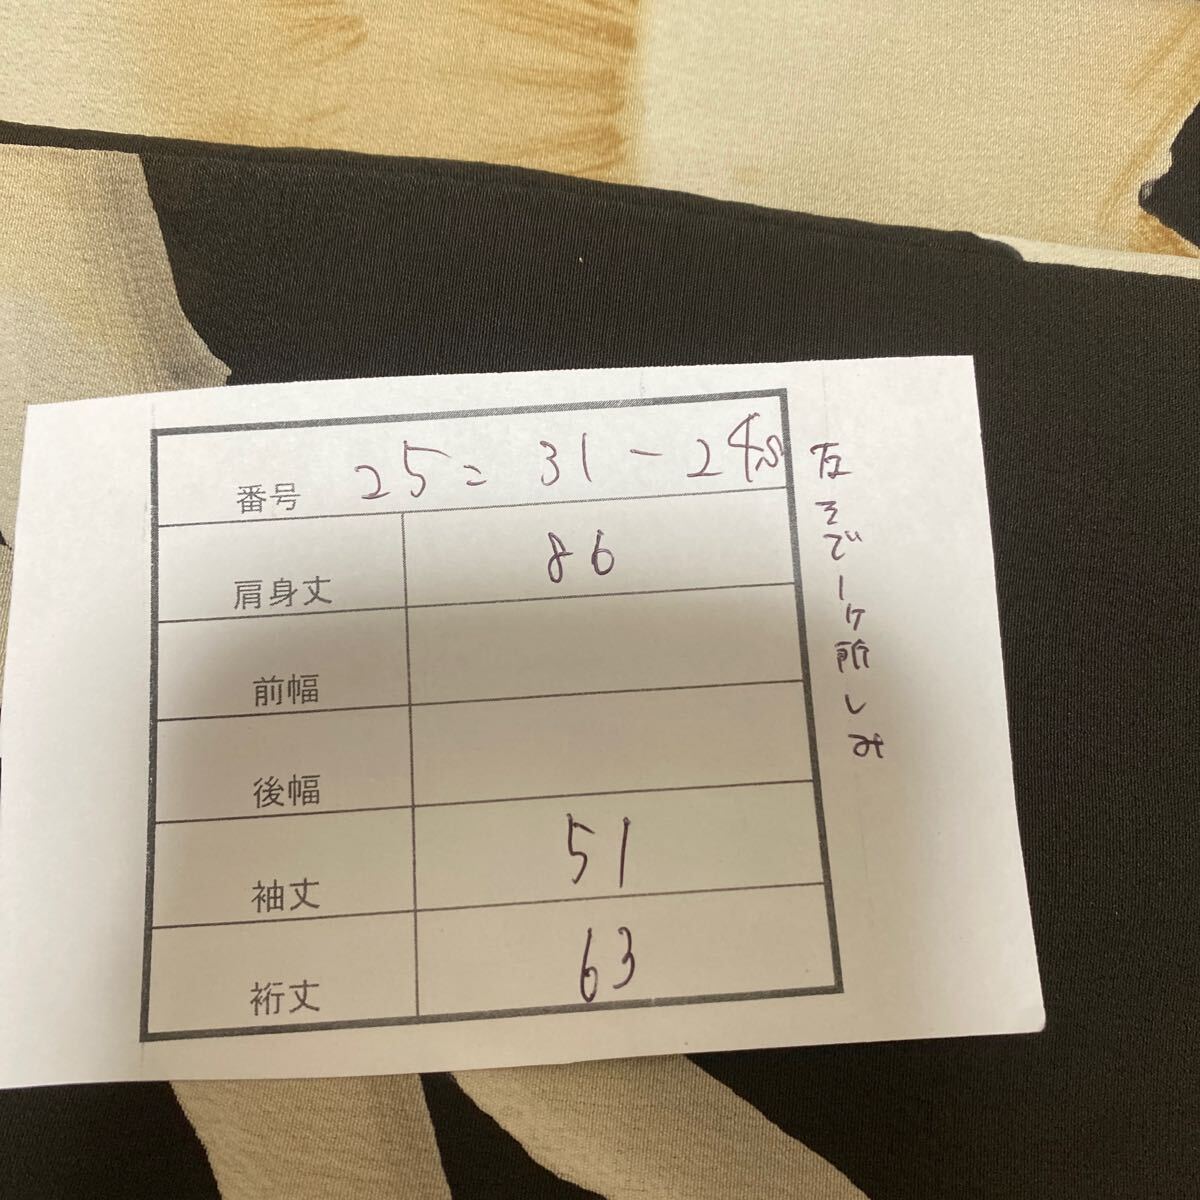 番号 25=31-24
肩身丈 86
前幅
後幅
袖丈 51
裄丈 63
そで1ケ所しみ